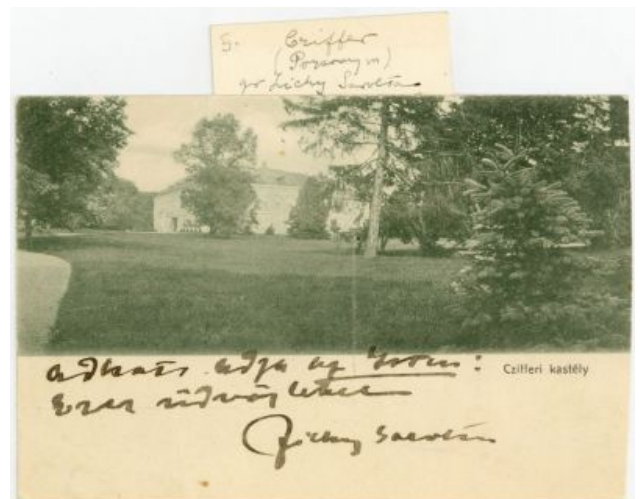 5. Cziffer
(Pozsony m)
gr Zichy Sarolta
Czifferi kastély
adja az Isten:
Ezer üdvözlettel
Zichy Sarolta